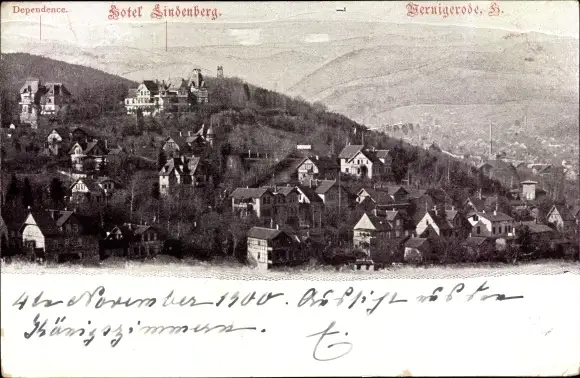 Dependence. Hotel Lindenberg. Wernigerode, H.
4te November 1900. Aussicht aus den
Königszimmern.
E.